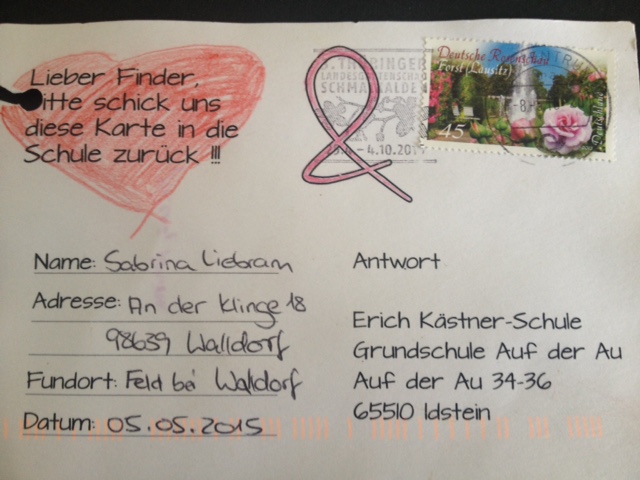 Lieber Finder,
itte schick uns
diese Karte in die
Schule zurück !!!
3. THÜRINGER
LANDESGARTENSCHAU
SCHMALKALDEN
- 4.10.201
Deutsche Rosenschau
Forst (Lausitz)
45
Deutschland
Name: Sabrina Liebram
Adresse: An der Klinge 18
98639 Walldorf
Fundort: Feld bei Walldorf
Datum: 05.05.2015
Antwort
Erich Kästner-Schule
Grundschule Auf der Au
Auf der Au 34-36
65510 Idstein